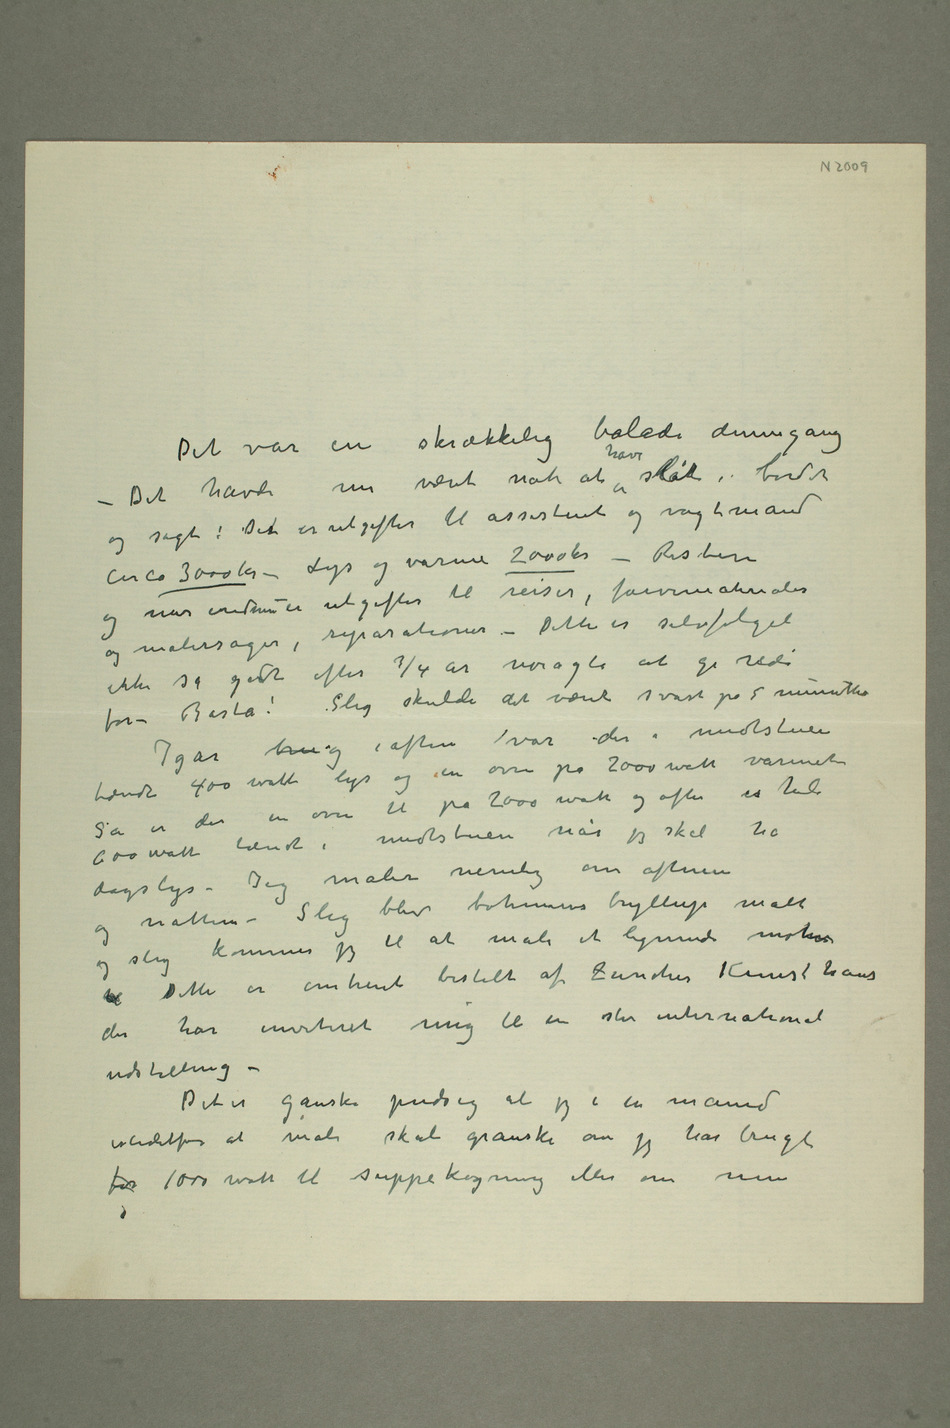 N 2009
Det var en skrækkelig balade dennegang
– Det havde nu været nok at have slåt i bordet
og sagt: Det er utgifter til assistent og vagtmand
circa 3000 kr – Lys og varme 2000 kr – Resten
og mer endnu er utgifter til reiser, farvematerialer
og malersager, reparationer – Dette er selvfølgelig
ikke så godt efter 3/4 år nøiagtig at gi rede
for – Basta! Slig skulde det været svart på 5 minutter
Igår og iaften var der i midtstuen
tændt 400 watt lys og en ovn på 2000 watt varmet
Så er der en ovn til på 2000 watt og ofte er hele
600 watt tændt i midtstuen når jeg skal ha
dagslys – Jeg maler nemlig om aftnen
og natten – Slig blev bohemens bryllup malt
og slig kommer jeg til at male et lignende motiv
Dette er omtrent bestilt af Züricher Kunsthaus
der har inviteret mig til en stor international
udstilling –
Det er ganske pudsig at jeg i en måned
istedetfor at male skal granske om jeg har brugt
for 1000 watt til suppekogning eller om min